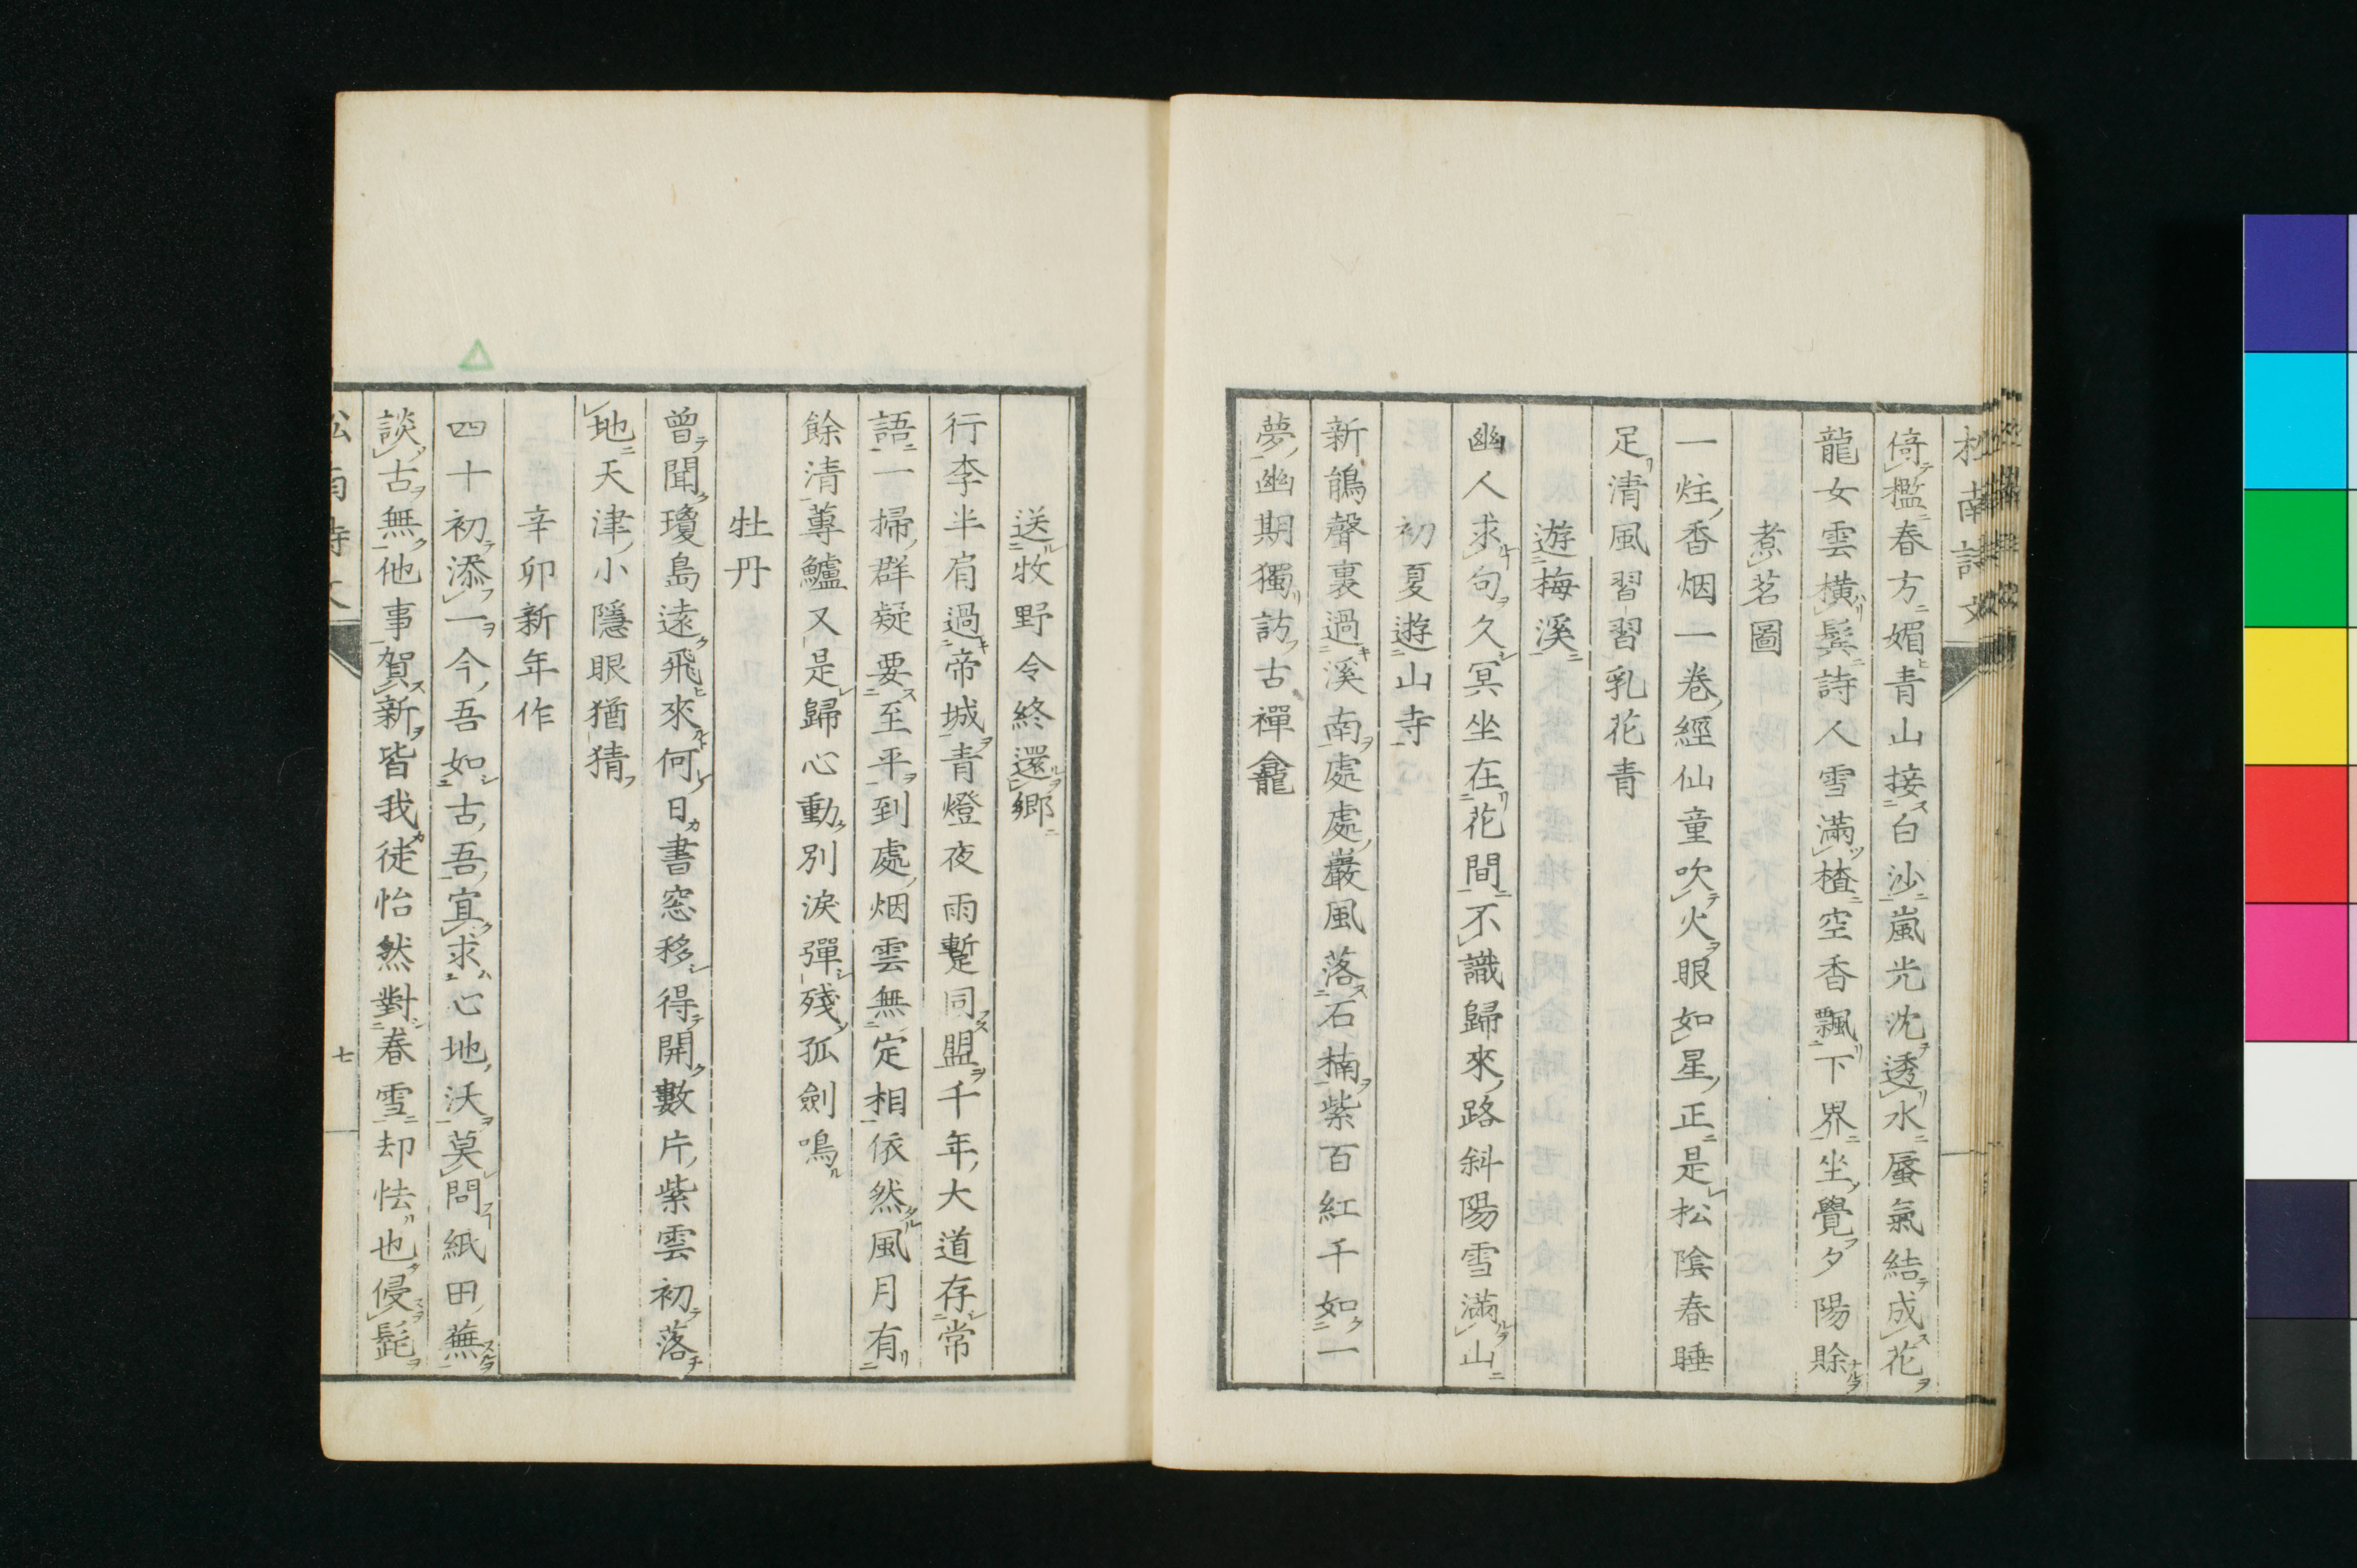 松南詩文
倚檻春方媚青山接白沙嵐光沈透水蜃氣結成花
龍女雲橫鬂詩人雪滿楂空香飄下界坐覺夕陽賒
煮茗圖
一炷香烟一卷經仙童吹火眼如星正是松陰春睡
足清風習習乳花青
遊梅溪
幽人求句久冥坐在花間不識歸來路斜陽雪滿山
初夏遊山寺
新鵑聲裏過溪南處處巖風落石楠紫百紅千如一
夢幽期獨訪古禪龕
送牧野令終還鄉
行李半肩過帝城青燈夜雨蹔同盟千年大道存常
語一掃群疑要至平到處烟雲無定相依然風月有
餘清蓴鱸又是歸心動別淚彈殘孤劍鳴
牡丹
曾聞瓊島遠飛來何日書窓移得開數片紫雲初落
地天津小隱眼猶猜
辛卯新年作
四十初添一今吾如古吾宜求心地沃莫問紙田蕪
談古無他事賀新皆我徒怡然對春雪却怯也侵髭
松南詩文
七